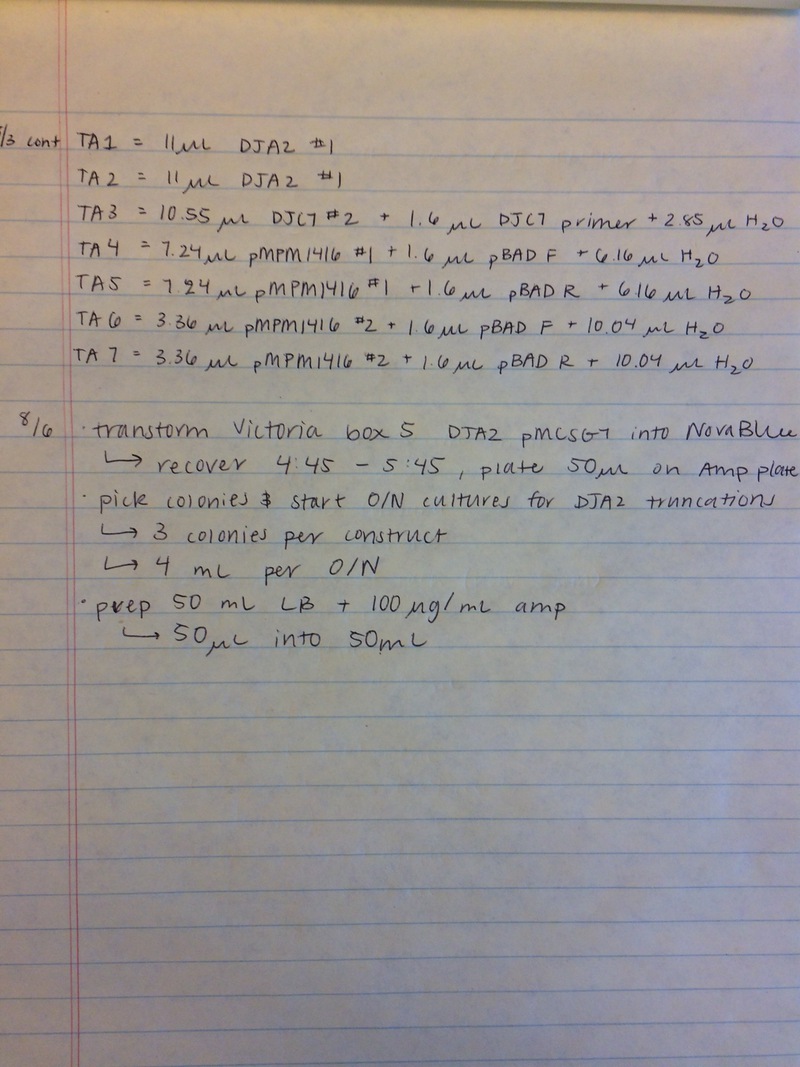 /3 cont TA1 = 11μL DJA2 #1
TA2 = 11μL DJA2 #1
TA3 = 10.55 μL DJC7 #2 + 1.6 μL DJC7 primer + 2.85 μL H₂O
TA4 = 7.24μL pMPM1416 #1 + 1.6 μL pBAD F + 6.16 μL H₂O
TA5 = 7.24 μL pMPM1416 #1 + 1.6 μL pBAD R + 6.16 μL H₂O
TA6 = 3.36 μL pMPM1416 #2 + 1.6 μL pBAD F + 10.04 μL H₂O
TA7 = 3.36 μL pMPM1416 #2 + 1.6 μL pBAD R + 10.04 μL H₂O
8/6 · transform Victoria box 5 DJA2 pMCSG7 into NovaBlue
↳ recover 4:45 - 5:45, plate 50μL on Amp plate
· pick colonies & start O/N cultures for DJA2 truncations
↳ 3 colonies per construct
↳ 4 mL per O/N
· prep 50 mL LB + 100 μg/mL amp
↳ 50μL into 50mL